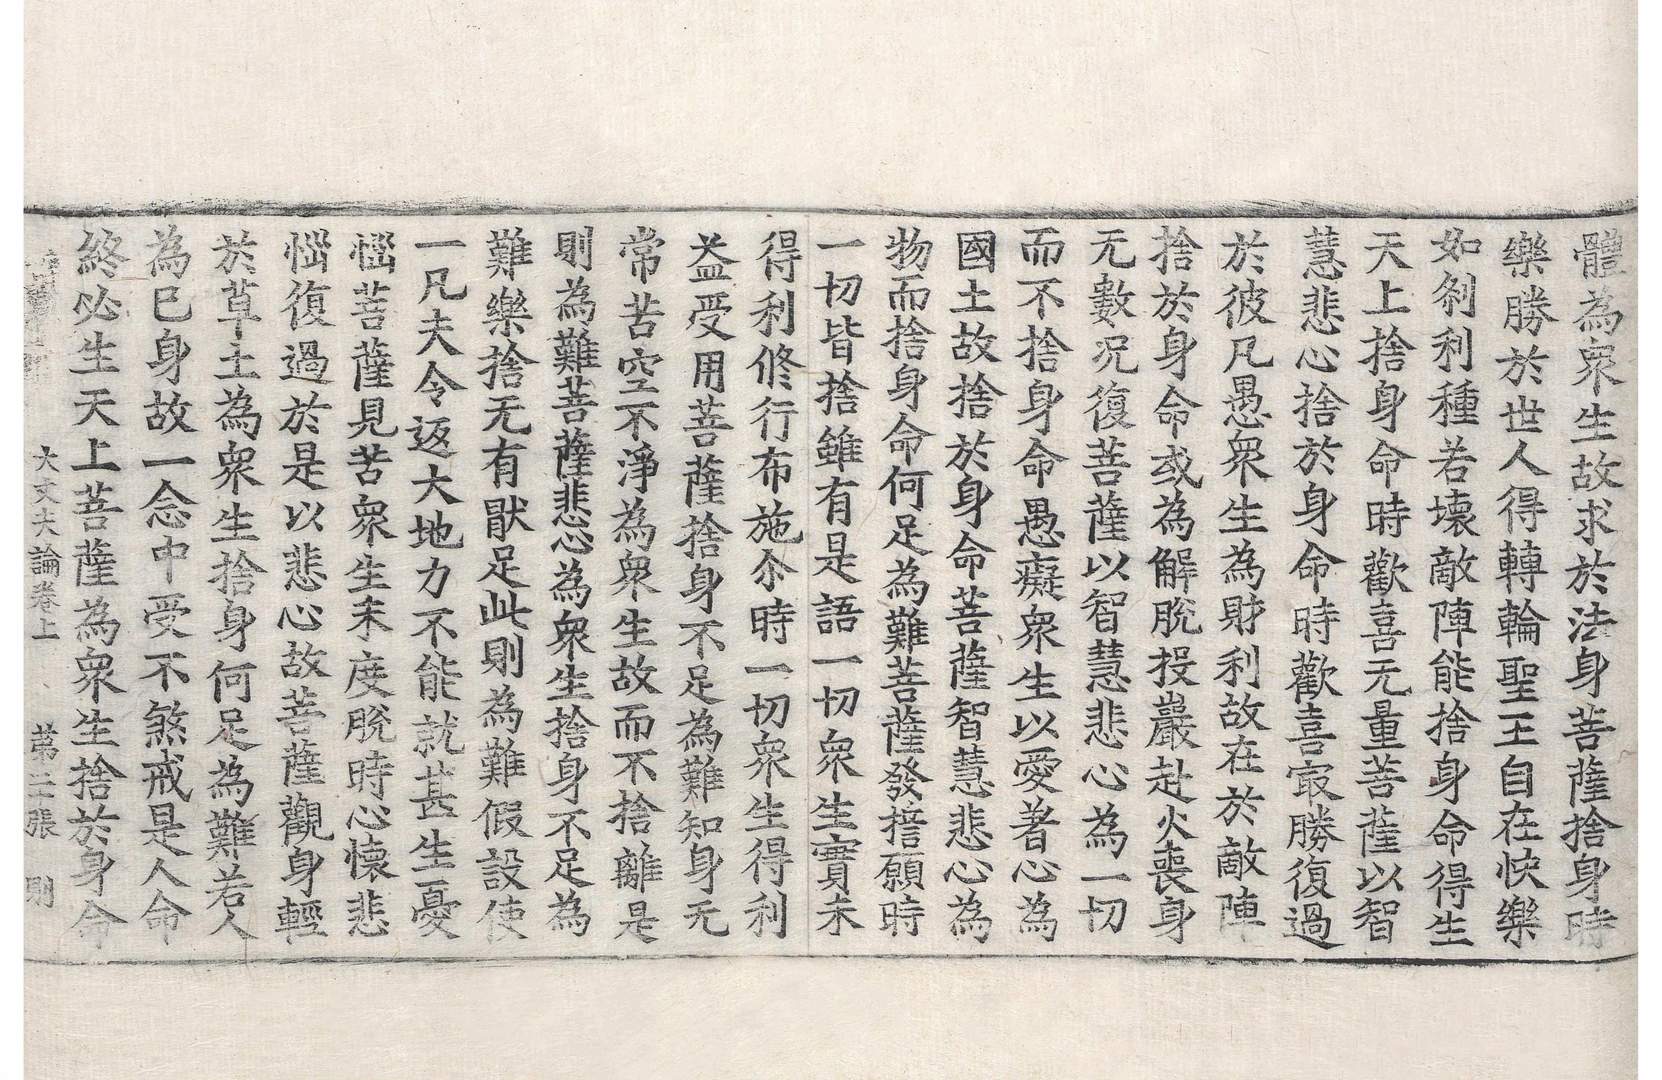 體為衆生故求於法身菩薩捨身時
樂勝於世人得轉輪聖王自在快樂
如刹利種若壞敵陣能捨身命得生
天上捨身命時歡喜无量菩薩以智
慧悲心捨於身命時歡喜㝡勝復過
於彼凡愚衆生為財利故在於敵陣
捨於身命或為解脫投巖赴火喪身
无數况復菩薩以智慧悲心為一切
而不捨身命愚癡衆生以愛著心為
國土故捨於身命菩薩智慧悲心為
物而捨身命何足為難菩薩發㨾願時
一切皆捨雖有是語一切衆生實未
得利修行布施尒時一切衆生得利
益受用菩薩捨身不足為難知身无
常苦空不淨為衆生故而不捨離是
則為難菩薩悲心為衆生捨身不足為
難樂捨无有猒足此則為難假設使
一凡夫令返大地力不能就甚生憂
惱菩薩見苦衆生未度脫時心懷悲
惱復過於是以悲心故菩薩觀身輕
於草土為衆生捨身何足為難若人
為已身故一念中受不煞戒是人命
終必生天上菩薩為衆生捨於身命
大丈夫論卷上 第二十張 則